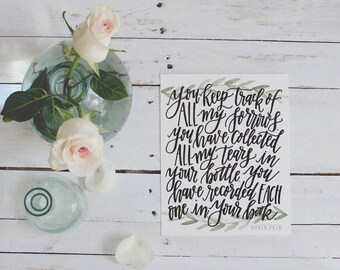 You keep track of
All my sorrows
you have collected
All my tears in
your bottle you
have recorded EACH
one in Your book.
PSALM 56:8